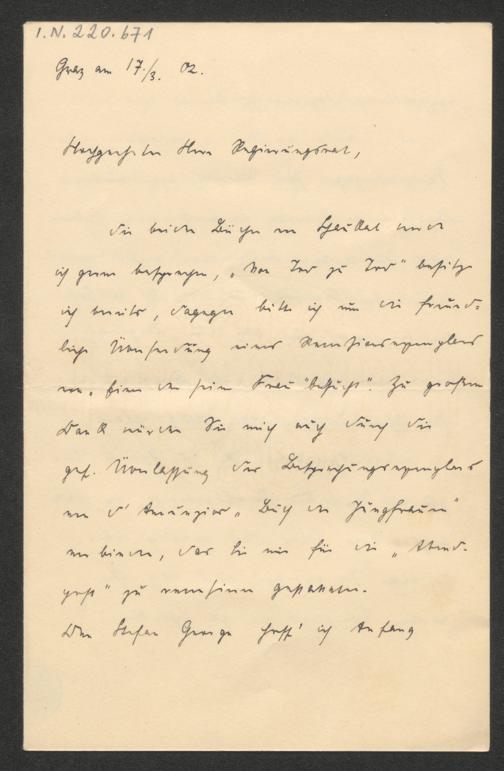 I.N. 220.671
Graz am 17./3. 02.
Hochgeehrter Herr Regierungsrat,
Die beiden Bücher von Schaukal werde
ich gerne besprechen, „Von Tod zu Tod" besitze
ich bereits, dagegen bitte ich um die freund-
liche Übersendung eines Rezensionsexemplars
von „Einer der seine Frau besucht". Zu großem
Dank würden Sie mich auch durch die
gef. Überlassung des Besprechungsexemplars
von d'Annunzios „Buch der Jungfrauen"
verbinden, das Sie mir für die „
" zu rezensieren gestatteten.
Den Stefan George hoff' ich Anfang